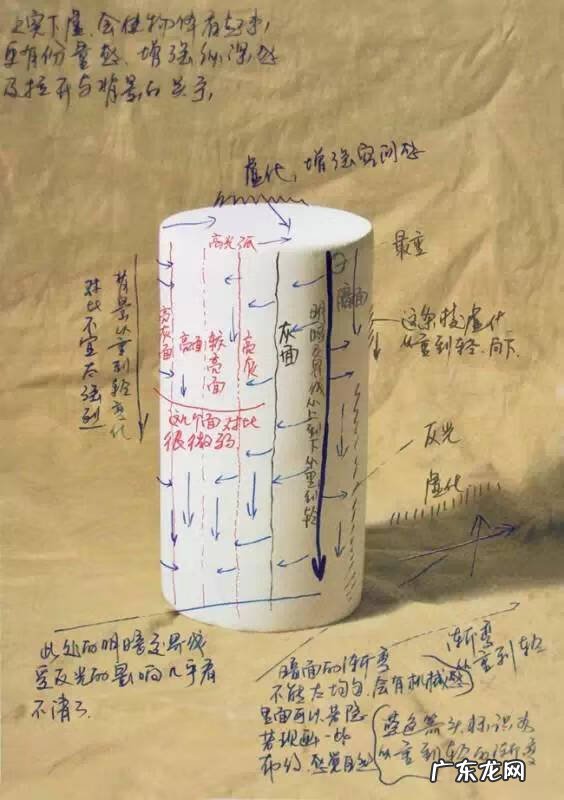 上实下虚.会使物体有起来,
更有份量感.增强纵深感
及拉开与背景的关系,
虚化,增强空间感
高光弧
最重
背景从重到轻变化
对比不宜太强烈
亮灰面
高面
较亮面
亮灰
灰面
明暗交界线从上到下从重到轻
暗面
这条线虚化
从重到轻.向下
这几个面对比
很微弱.
反光
虚化
此处的明暗交界线
受反光的影响几乎看
不清了.
渐弯
从重到轻
暗面的渐变
不能太均匀,会有机械感
里面可以若隐
若现画一些
布纹.感觉自然
蓝色箭头标识为
从重到轻的渐变
广东龙网